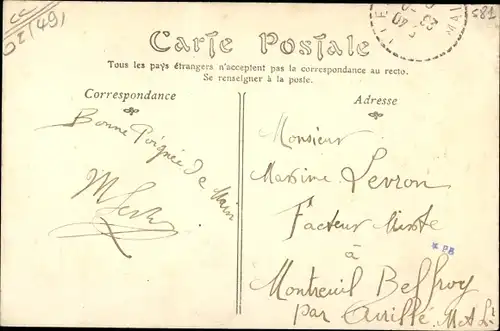 Carte Postale
Tous les pays étrangers n'acceptent pas la correspondance au recto.
Se renseigner à la poste.
Correspondance
Bonne Poignée de Main
Adresse
Monsieur
Maxime Levron
Facteur Mixte
à
Montreuil Belfroy
par Avrillé. M et L